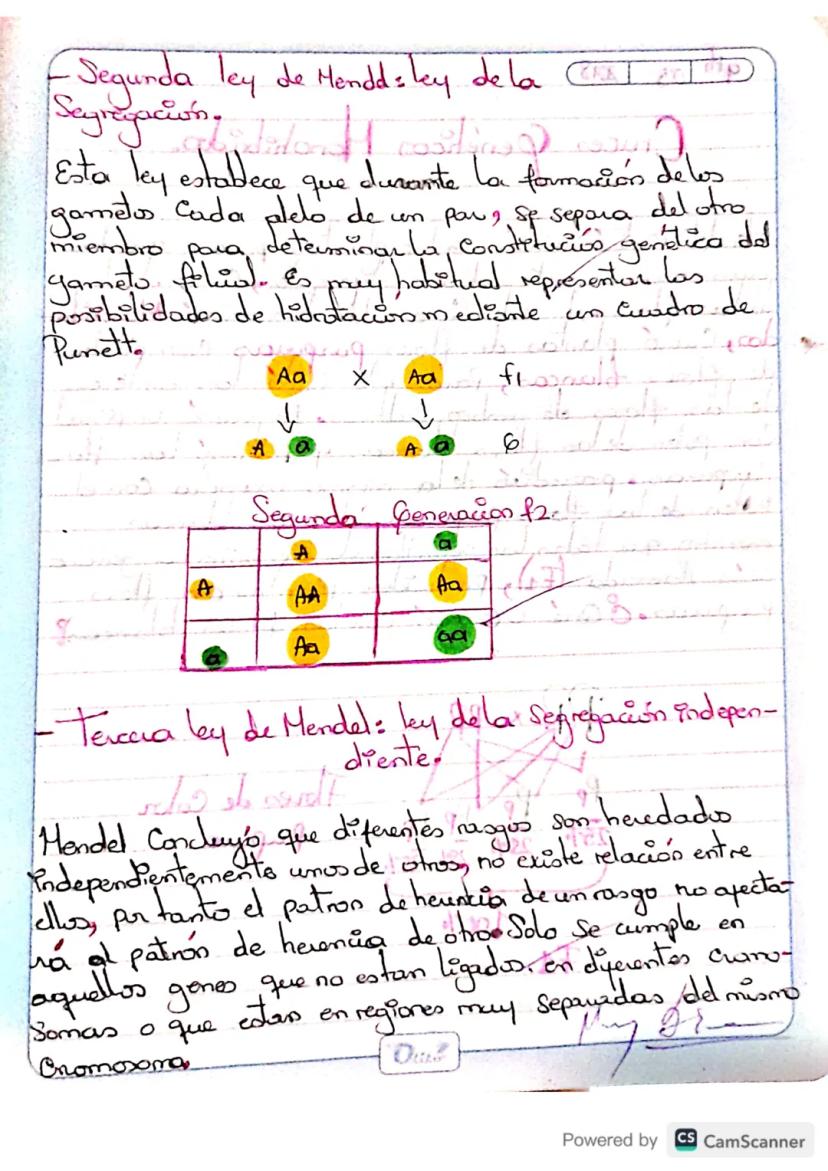 - Segunda ley de Mendel: ley de la
Segregación.
Esta ley establece que durante la formación de los
gametos Cada alelo de un par, se separa del otro
miembro para determinar la Constitución genética del
gameto filial. Es muy habitual representar las
posibilidades de hidratación mediante un Cuadro de
Punett.
Aa x Aa f1
A , a A a G
Segunda Generacion f2.
A a
A AA Aa
a Aa aa
- Tercera ley de Mendel: ley de la segregación indepen-
diente.
Mendel Concluyó que diferentes rasgos son heredados
independientemente unos de otros, no existe relación entre
ellos, por tanto el patron de herencia de un rasgo no afecta-
rá al patrón de herencia de otro. Solo se cumple en
aquellos genes que no estan ligados. en diferentes cromo-
somas o que estan en regiones muy separadas del mismo
Cromosoma.
Powered by CS CamScanner